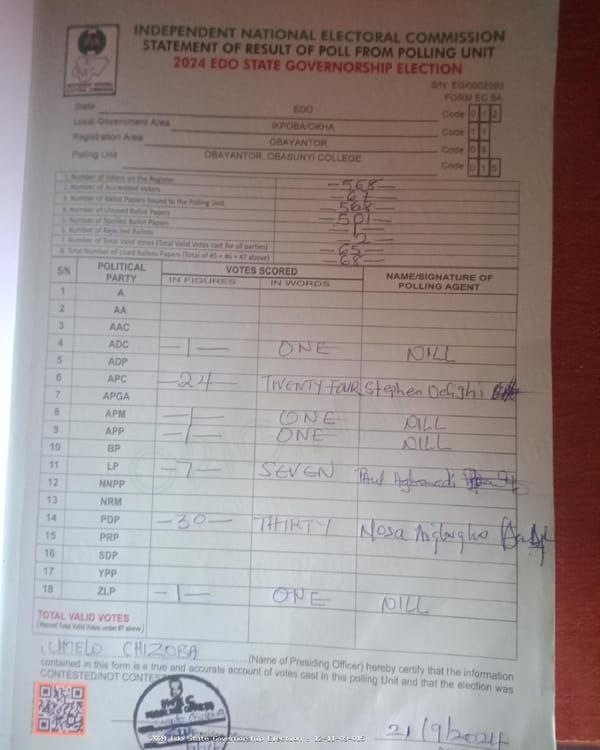 INDEPENDENT NATIONAL ELECTORAL COMMISSION
STATEMENT OF RESULT OF POLL FROM POLLING UNIT
2024 EDO STATE GOVERNORSHIP ELECTION
S/N: EG/0002593
FORM EC 8A
State EDO Code 0 1 2
Local Government Area IKPOBA/OKHA Code 1 1
Registration Area OBAYANTOR Code 0 9
Polling Unit OBAYANTOR, OBASUNYI COLLEGE Code 0 1 5
1. Number of Voters on the Register -568-
2. Number of Accredited Voters -67-
3. Number of Ballot Papers Issued to the Polling Unit -568-
4. Number of Unused Ballot Papers -501-
5. Number of Spoiled Ballot Papers -1-
6. Number of Rejected Ballots -2-
7. Number of Total Valid Votes (Total Valid Votes cast for all parties) -65-
8. Total Number of Used Ballots Papers (Total of #5 + #6 + #7 above) -68-
S/N POLITICAL PARTY VOTES SCORED NAME/SIGNATURE OF POLLING AGENT
IN FIGURES IN WORDS
1 A
2 AA
3 AAC
4 ADC -1- ONE NILL
5 ADP
6 APC -24- TWENTY FOUR Stephen Odighi
7 APGA
8 APM -1- ONE NILL
9 APP -1- ONE NILL
10 BP
11 LP -7- SEVEN Paul
12 NNPP
13 NRM
14 PDP -30- THIRTY Nosa
15 PRP
16 SDP
17 YPP
18 ZLP -1- ONE NILL
TOTAL VALID VOTES
(Record Total Valid Votes under #7 above)
CHIZOBA (Name of Presiding Officer) hereby certify that the information
contained in this form is a true and accurate account of votes cast in this polling Unit and that the election was
CONTESTED/NOT CONTES
21/9/2024
2024 Edo State Governorship Election - 12-11-09-015